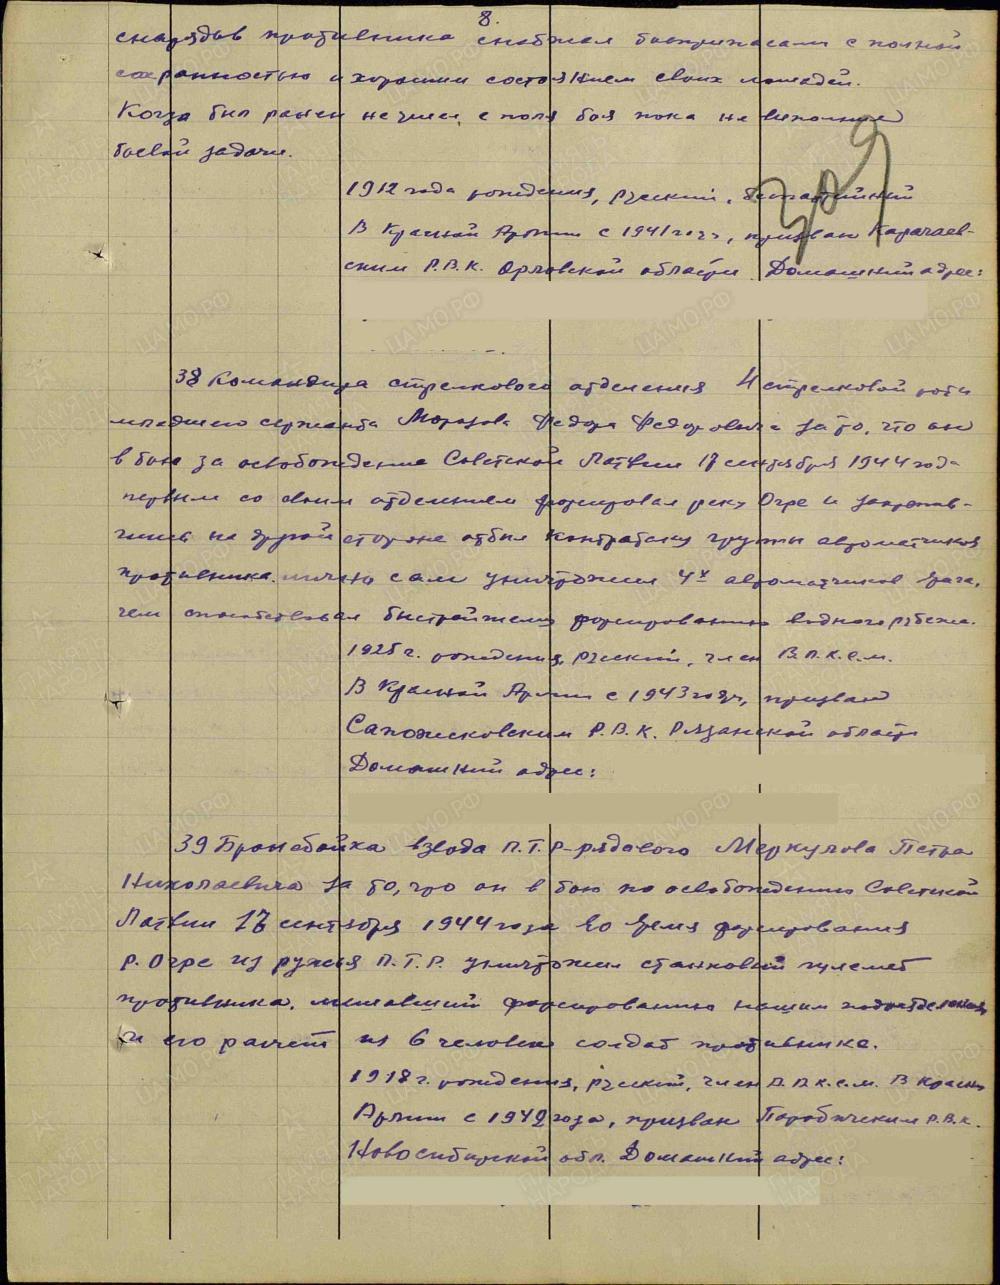 8.
снарядов противника снабжал боеприпасами с полной
сохранностью и хорошим состоянием своих лошадей.
Когда был ранен не ушел с поля боя пока не выполнил
боевой задачи.
1912 года рождения, русский, беспартийный
В Красной Армии с 1941 году, призван Карачаев-
ским Р.В.К. Орловской области Домашний адрес:
38 Командира стрелкового отделения 4 стрелковой роты
младшего сержанта Морозова Федора Федоровича за то, что он
в бою за освобождение Советской Латвии 17 сентября 1944 года
первым со своим отделением форсировал реку Огре и закрепив-
шись на другой стороне отбил контратаки группы автоматчиков
противника. лично сам уничтожил 4х автоматчиков врага,
чем способствовал быстрейшему форсированию водного рубежа.
1925 г. рождения, русский, член В.Л.К.С.М.
В Красной Армии с 1943 году, призван
Сапожковским Р.В.К. Рязанской области
Домашний адрес:
39 Бронебойка взвода П.Т.Р. рядового Меркулова Петра
Николаевича за то, что он в бою по освобождению Советской
Латвии 17 сентября 1944 года во время форсирования
р. Огре из ружья П.Т.Р. уничтожил станковый пулемет
противника, мешавший форсированию нашим подразделениям
и его расчет из 6 человек солдат противника.
1918 г. рождения, русский, член В.Л.К.С.М. В Красн.
Армии с 1942 года, призван Р.В.К.
Новосибирской обл. Домашний адрес:
ЦАМО.РФ
ПАМЯТЬ НАРОДА